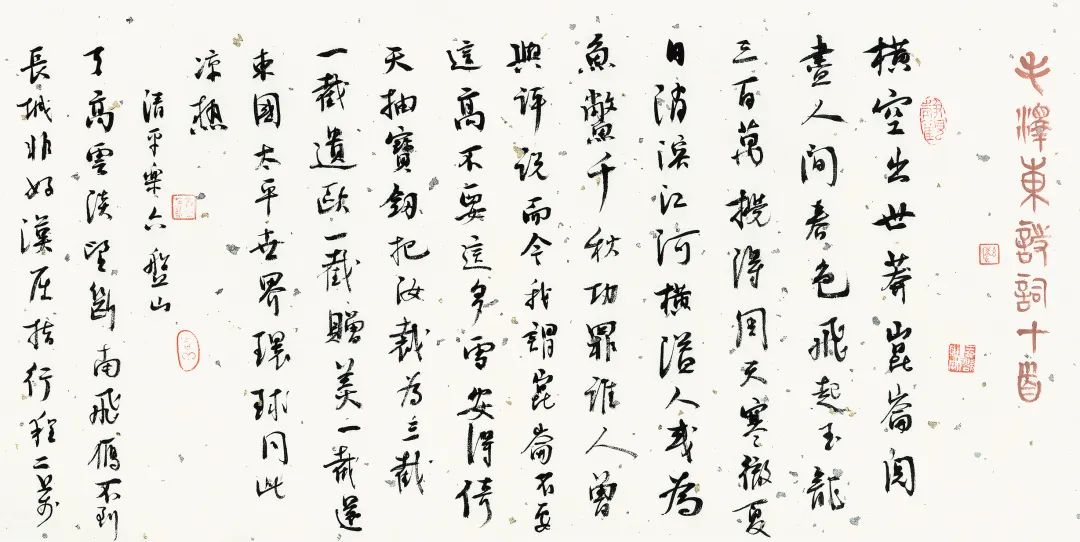 毛澤東詩詞十首
橫空出世莽崑崙閱
盡人間春色飛起玉龍
三百萬攪得周天寒徹夏
日消溶江河橫溢人或為
魚鱉千秋功罪誰人曾
與評說而今我謂崑崙不要
這高不要這多雪安得倚
天抽寶釼把汝裁為三截
一截遺歐一截贈美一截還
東國太平世界環球同此
涼熱
清平樂六盤山
天高雲淡望斷南飛雁不到
長城非好漢屈指行程二萬